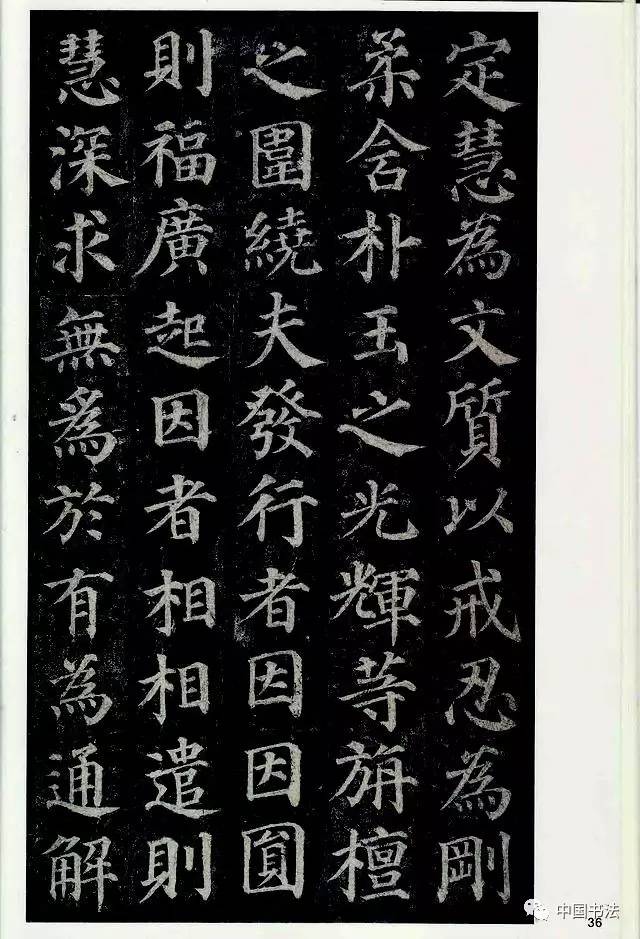 定慧為文質以戒忍為剛
柔含朴玉之光輝等旃檀
之圍繞夫發行者因因圓
則福廣起因者相相遣則
慧深求無為於有為通解
中国书法
36